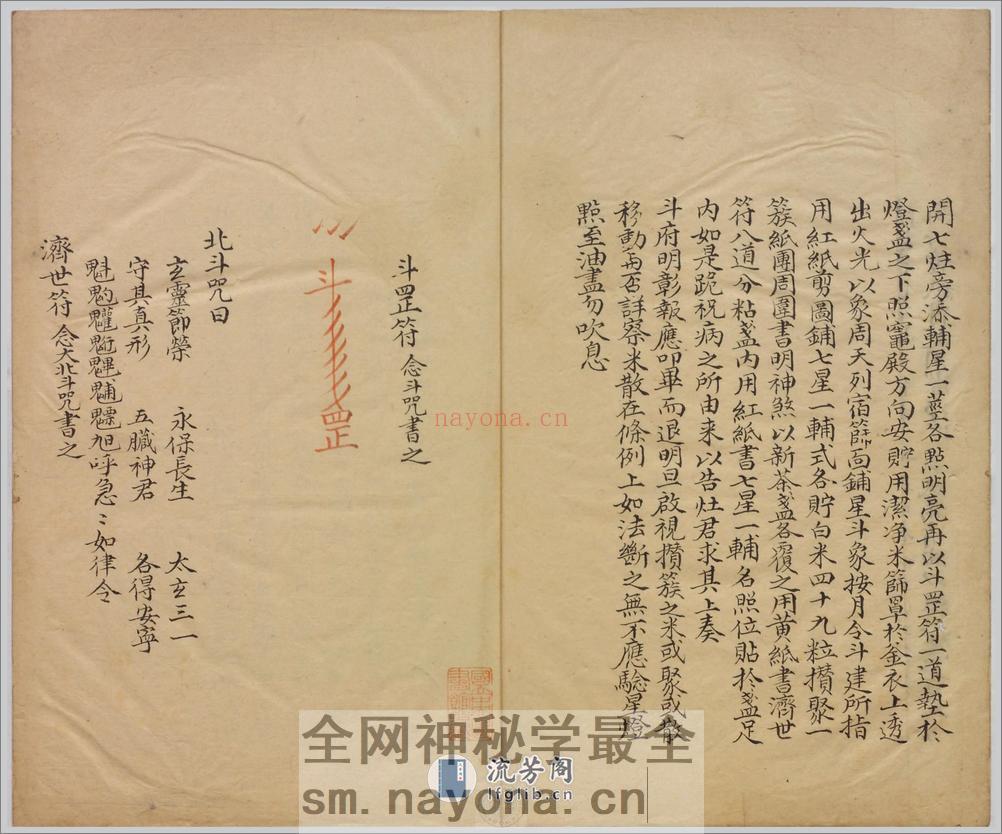 開七炷旁添輔星一莖各點明亮再以斗罡符一道墊於
燈盞之下照竈殿方向安貯用潔净米篩罩於釜衣上透
出火光以象周天列宿篩面鋪星斗象按月令斗建所指
用紅紙剪圖鋪七星一輔式各貯白米四十九粒攅聚一
簇紙團周圍書明神煞以新茶盞各覆之用黄紙書濟世
符八道分粘盞内用紅紙書七星一輔名照位貼於盞足
内如是跪祝病之所由来以告灶君求其上奏
斗府明彰報應叩畢而退明旦啟視攅簇之米或聚或散
移動與否詳察米散在條例上如法斷之無不應驗星燈
點至油盡勿吹息
斗罡符 念斗咒書之
斗
罡
北斗咒曰
玄靈節榮 永保長生 太玄三一
守其真形 五臟神君 各得安寧
急〻如律令
濟世符 念大北斗咒書之
nayona.cn
全网神秘学最全
流芳阁
lfglib.cn
sm.nayona.cn